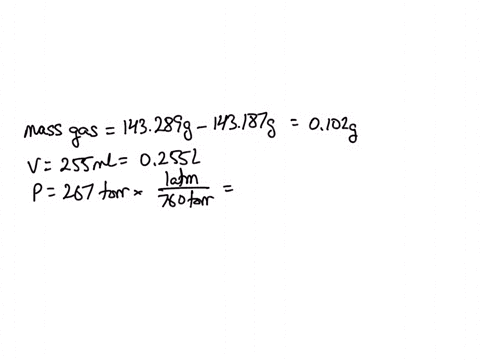 mass gas = 143.289g - 143.187g = 0.102g
V = 255ml = 0.255L
P = 267 torr × 1atm/760torr =